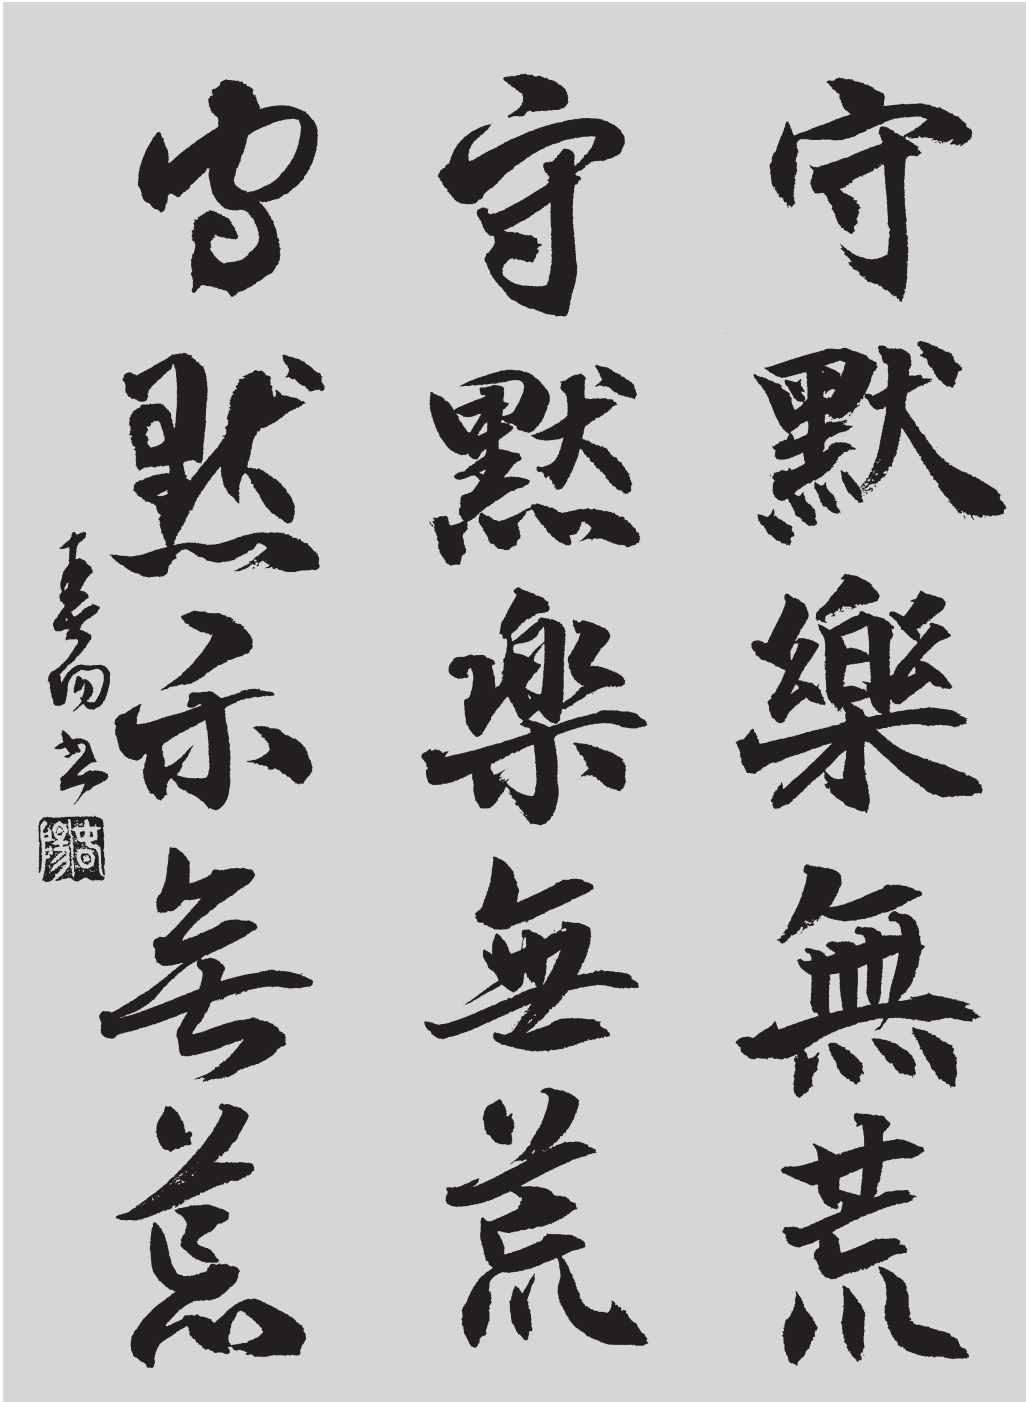 守默樂無荒
守默楽無荒
守默乐無荒
春陽書
春陽